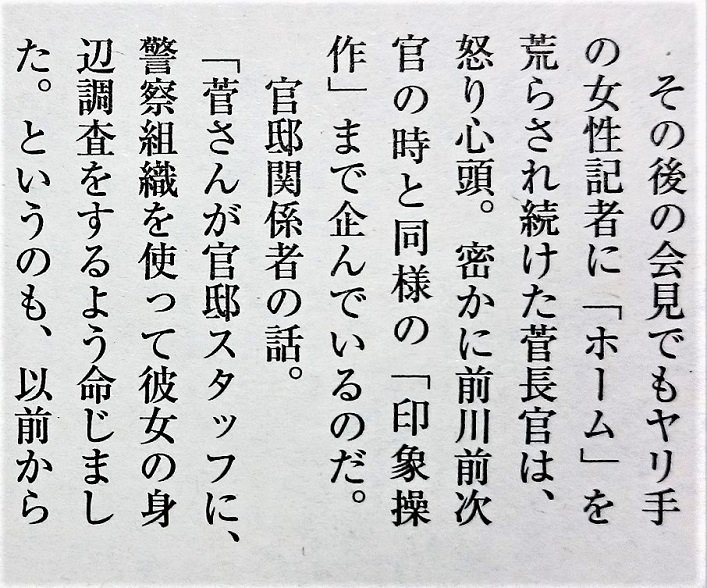 その後の会見でもヤリ手
の女性記者に「ホーム」を
荒らされ続けた菅長官は、
怒り心頭。密かに前川前次
官の時と同様の「印象操
作」まで企んでいるのだ。
官邸関係者の話。
「菅さんが官邸スタッフに、
警察組織を使って彼女の身
辺調査をするよう命じまし
た。というのも、以前から